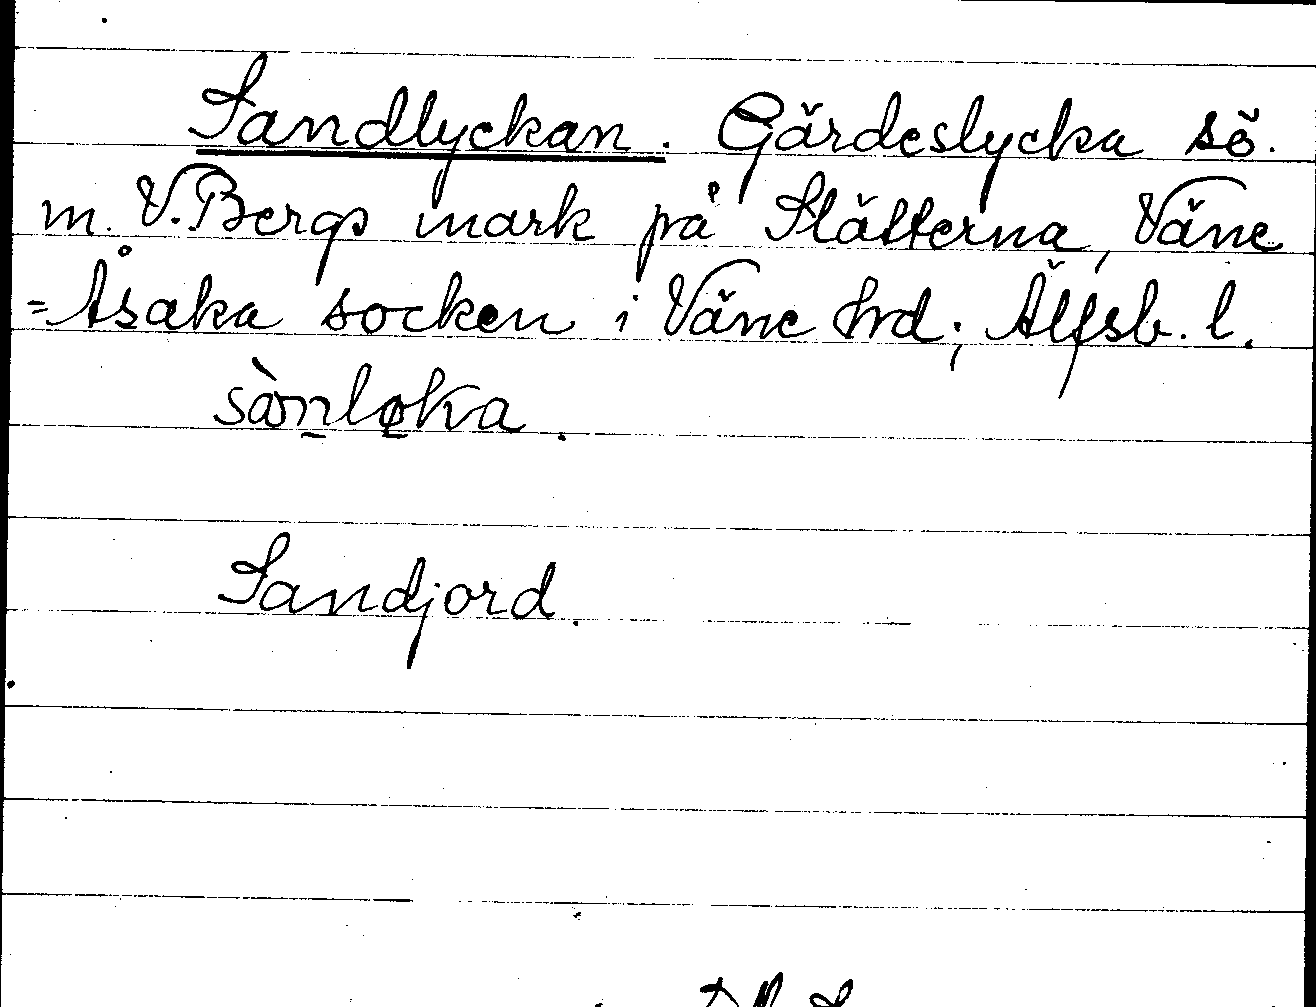 Sandlyckan. Gärdeslycka sö.
m. V. Bergs mark på Slätterna, Väne
=Åsaka socken i Väne hrd; Älfsb. l.
sànlo̲ka.
Sandjord.